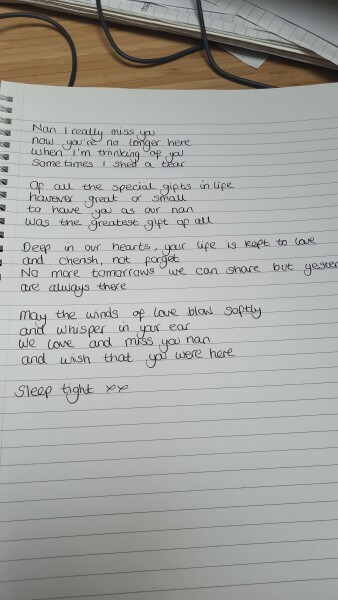 Nan I really miss you
now you're no longer here
when I'm thinking of you
sometimes I shed a tear
Of all the special gifts in life
however great or small
to have you as our nan
was the greatest gift of all
Deep in our hearts, your life is kept to love
and cherish, not forget
No more tomorrows we can share but yester
are always there
May the winds of love blow softly
and whisper in your ear
We love and miss you nan
and wish that you were here
Sleep tight xx